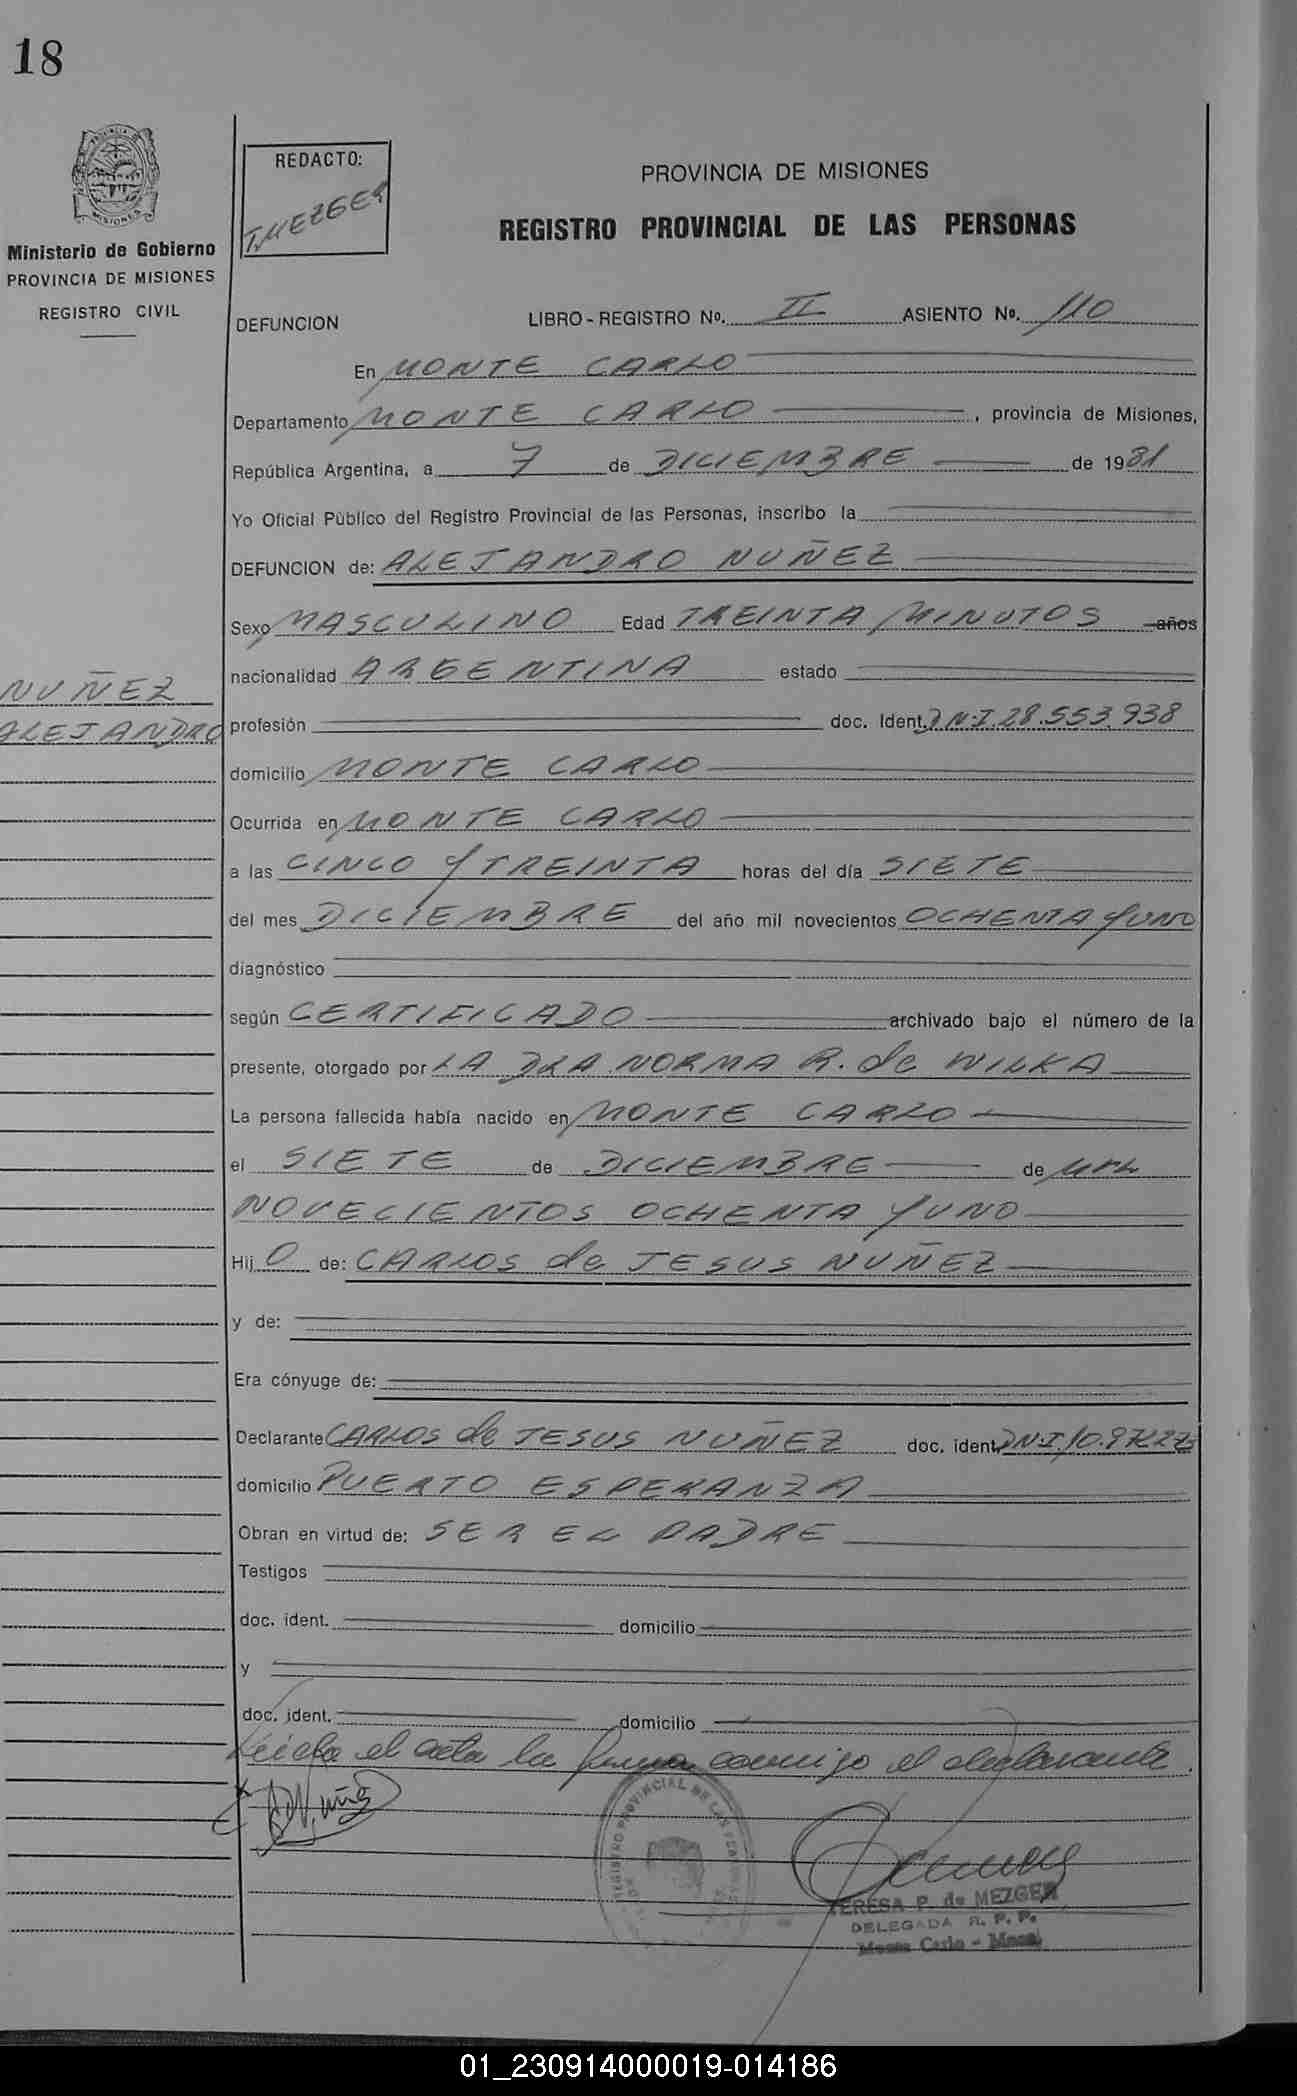 18
PROVINCIA DE
MISIONES
Ministerio de Gobierno
PROVINCIA DE MISIONES
REGISTRO CIVIL
REDACTO:
T.MEZGER
PROVINCIA DE MISIONES
REGISTRO PROVINCIAL DE LAS PERSONAS
DEFUNCION LIBRO - REGISTRO Nº. II ASIENTO Nº. 110
En MONTE CARLO
Departamento MONTE CARLO, provincia de Misiones,
República Argentina, a 7 de DICIEMBRE de 1981
Yo Oficial Público del Registro Provincial de las Personas, inscribo la
DEFUNCION de: ALEJANDRO NUÑEZ
Sexo MASCULINO Edad TREINTA MINUTOS años
NUÑEZ
ALEJANDRO
nacionalidad ARGENTINA estado
profesión doc. Ident. D.N.I.28.553.938
domicilio MONTE CARLO
Ocurrida en MONTE CARLO
a las CINCO Y TREINTA horas del día SIETE
del mes DICIEMBRE del año mil novecientos OCHENTA Y UNO
diagnóstico
según CERTIFICADO archivado bajo el número de la
presente, otorgado por LA DRA NORMA R. de WILKA
La persona fallecida había nacido en MONTE CARLO
el SIETE de DICIEMBRE de MIL
NOVECIENTOS OCHENTA Y UNO
Hij O de: CARLOS de JESUS NUÑEZ
y de:
Era cónyuge de:
Declarante CARLOS de JESUS NUÑEZ doc. ident. D.N.I.
domicilio PUERTO ESPERANZA
Obran en virtud de: SER EL PADRE
Testigos
doc. ident. domicilio
y
doc. ident. domicilio
Leida el acta la firma conmigo el declarante.
REGISTRO PROVINCIAL DE LAS PERSONAS
TERESA P. de MEZGER
DELEGADA R. P. P.
Monte Carlo -
01_230914000019-014186